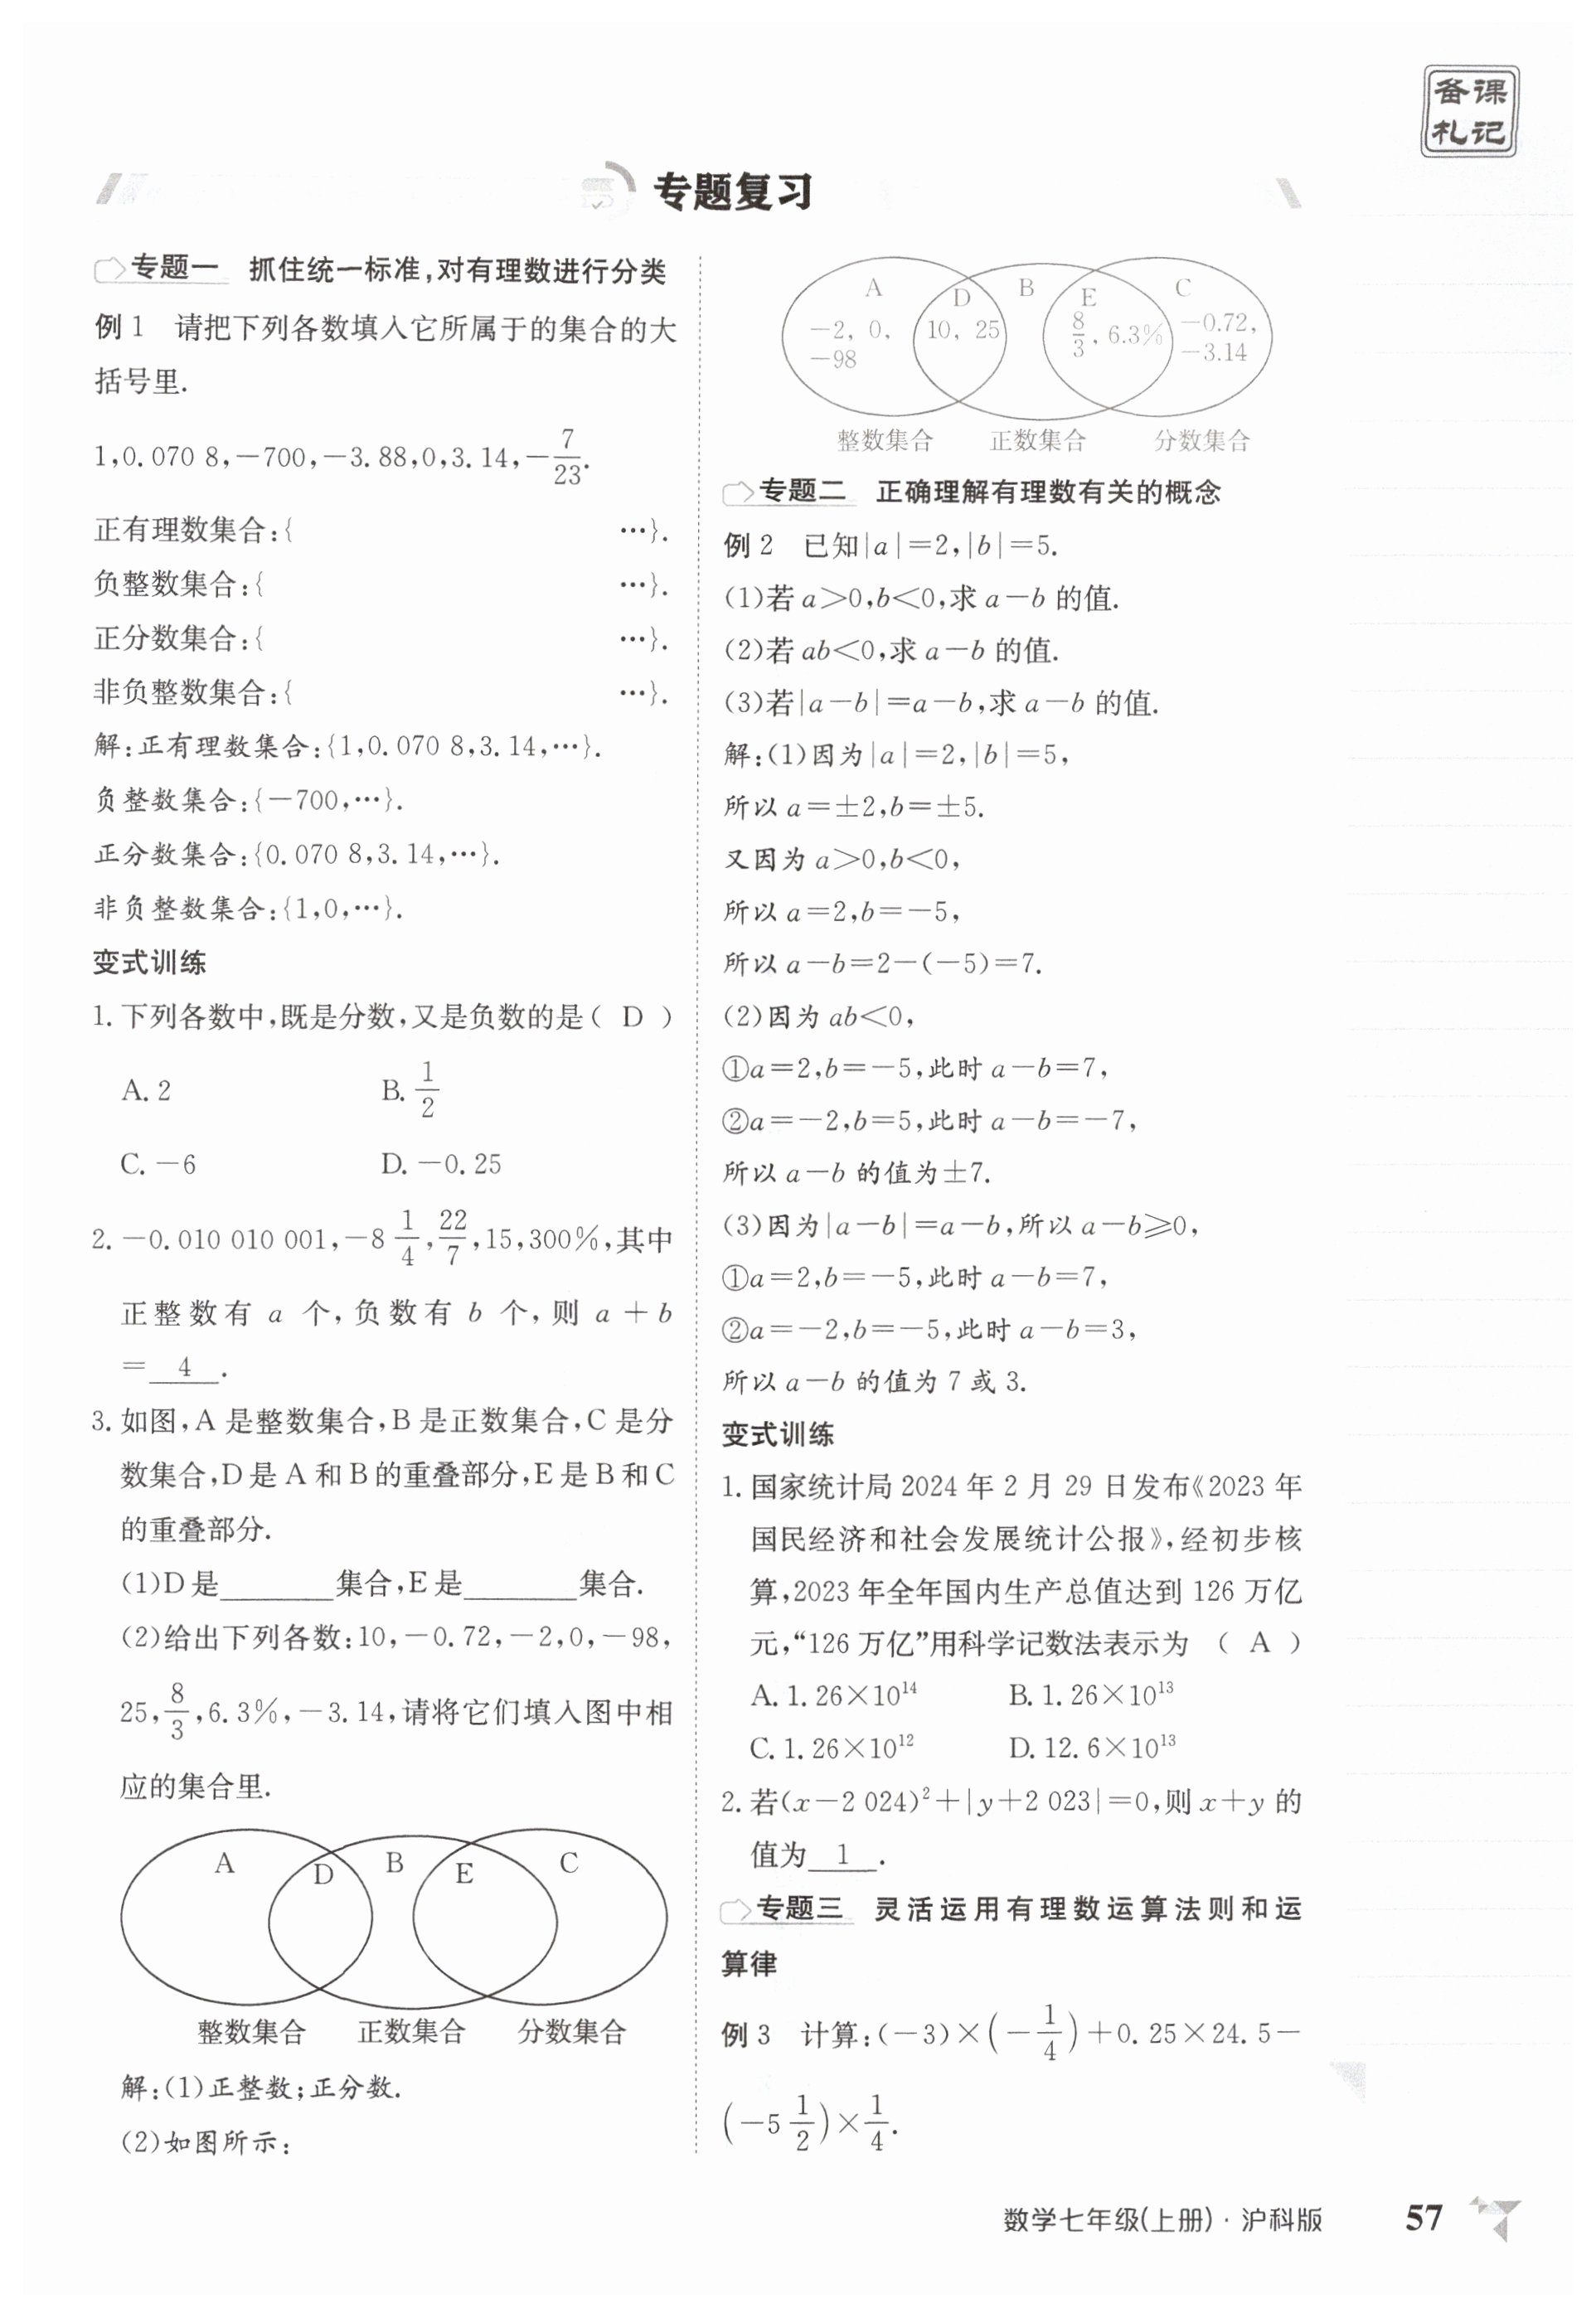 备课
札记
专题复习
专题一 抓住统一标准,对有理数进行分类
例1 请把下列各数填入它所属于的集合的大
括号里.
1,0.070 8,-700,-3.88,0,3.14,-7/23.
正有理数集合:{ …}.
负整数集合:{ …}.
正分数集合:{ …}.
非负整数集合:{ …}.
解:正有理数集合:{1,0.070 8,3.14,…}.
负整数集合:{-700,…}.
正分数集合:{0.070 8,3.14,…}.
非负整数集合:{1,0,…}.
变式训练
1.下列各数中,既是分数,又是负数的是( D )
A.2 B.1/2
C.-6 D.-0.25
2.-0.010 010 001,-8 1/4,22/7,15,300%,其中
正整数有 a 个,负数有 b 个,则 a+b
= 4 .
3.如图,A是整数集合,B是正数集合,C是分
数集合,D是A和B的重叠部分,E是B和C
的重叠部分.
(1)D是________集合,E是________集合.
(2)给出下列各数:10,-0.72,-2,0,-98,
25,8/3,6.3%,-3.14,请将它们填入图中相
应的集合里.
A D B E C
整数集合 正数集合 分数集合
解:(1)正整数;正分数.
(2)如图所示:
A D B E C
-2, 0, 10, 25 8/3, 6.3% -0.72,
-98 -3.14
整数集合 正数集合 分数集合
专题二 正确理解有理数有关的概念
例2 已知|a|=2,|b|=5.
(1)若a>0,b<0,求a-b的值.
(2)若ab<0,求a-b的值.
(3)若|a-b|=a-b,求a-b的值.
解:(1)因为|a|=2,|b|=5,
所以a=±2,b=±5.
又因为a>0,b<0,
所以a=2,b=-5,
所以a-b=2-(-5)=7.
(2)因为ab<0,
①a=2,b=-5,此时a-b=7,
②a=-2,b=5,此时a-b=-7,
所以a-b的值为±7.
(3)因为|a-b|=a-b,所以a-b≥0,
①a=2,b=-5,此时a-b=7,
②a=-2,b=-5,此时a-b=3,
所以a-b的值为7或3.
变式训练
1.国家统计局2024年2月29日发布《2023年
国民经济和社会发展统计公报》,经初步核
算,2023年全年国内生产总值达到126万亿
元,“126万亿”用科学记数法表示为 ( A )
A.1.26×10¹⁴ B.1.26×10¹³
C.1.26×10¹² D.12.6×10¹³
2.若(x-2 024)²+|y+2 023|=0,则x+y的
值为 1 .
专题三 灵活运用有理数运算法则和运
算律
例3 计算:(-3)×(-1/4)+0.25×24.5-
(-5 1/2)×1/4.
数学七年级(上册)·沪科版 57